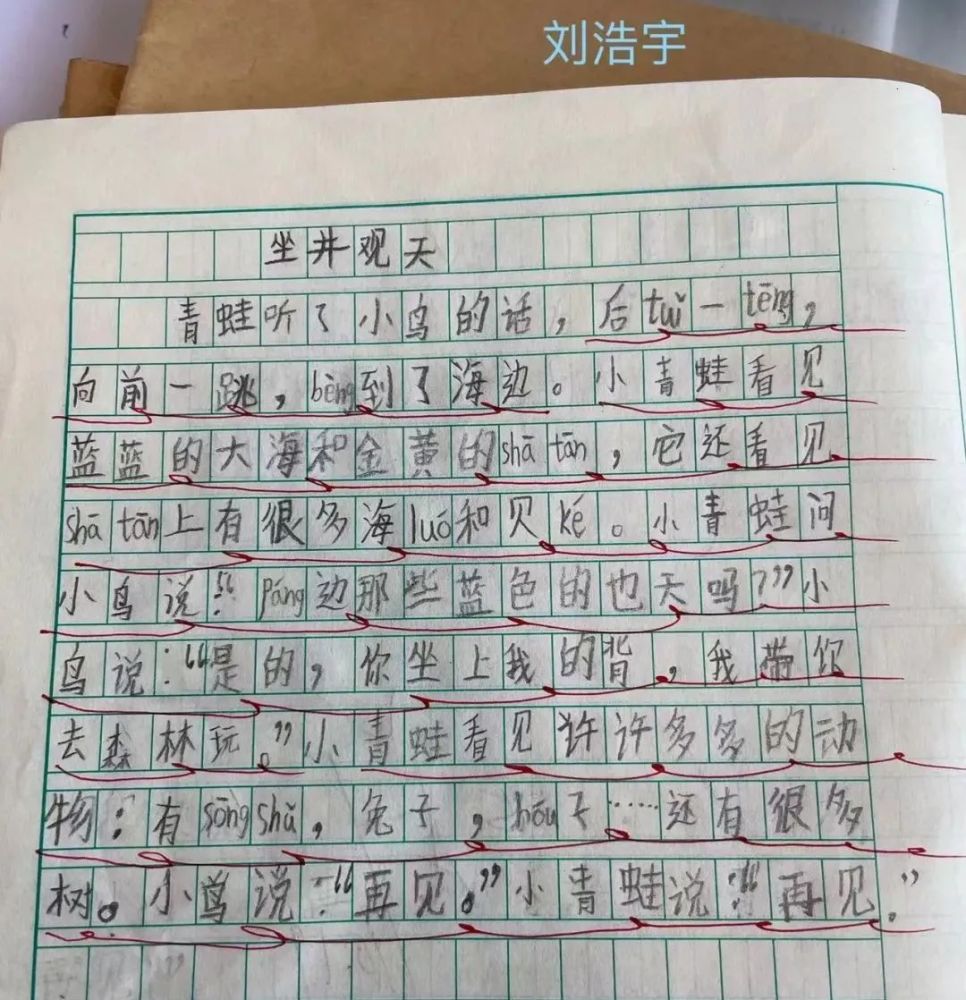 刘浩宇
坐井观天
青蛙听了小鸟的话，后tuǐ一tēng，
向前一跳，bèng到了海边。小青蛙看见
蓝蓝的大海和金黄的shā tān，它还看见
shā tān上有很多海luó和贝ké。小青蛙问
小鸟说：“Páng边那些蓝色的也天吗？”小
鸟说：“是的，你坐上我的背，我带你
去森林玩。”小青蛙看见许许多多的动
物：有sōng shǔ，兔子，hóu子……还有很多
树。小鸟说：“再见。”小青蛙说：“再见。”